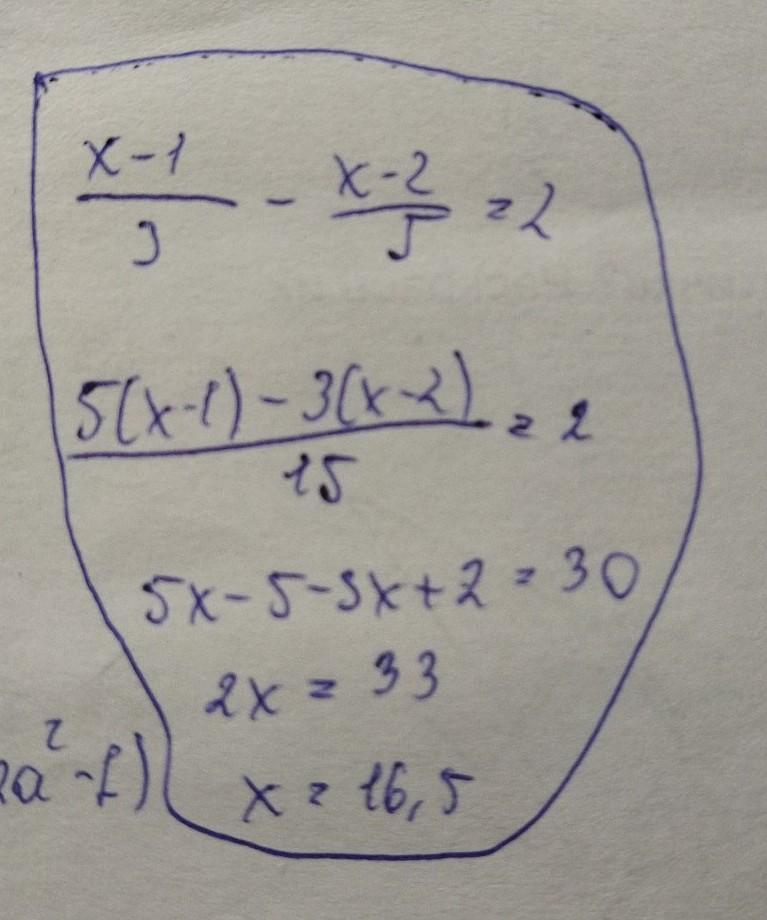 x-1
/3 - x-2/5 = 2
5(x-1) - 3(x-2)/15 = 2
5x-5-3x+2 = 30
2x = 33
x = 16,5
a²-1)